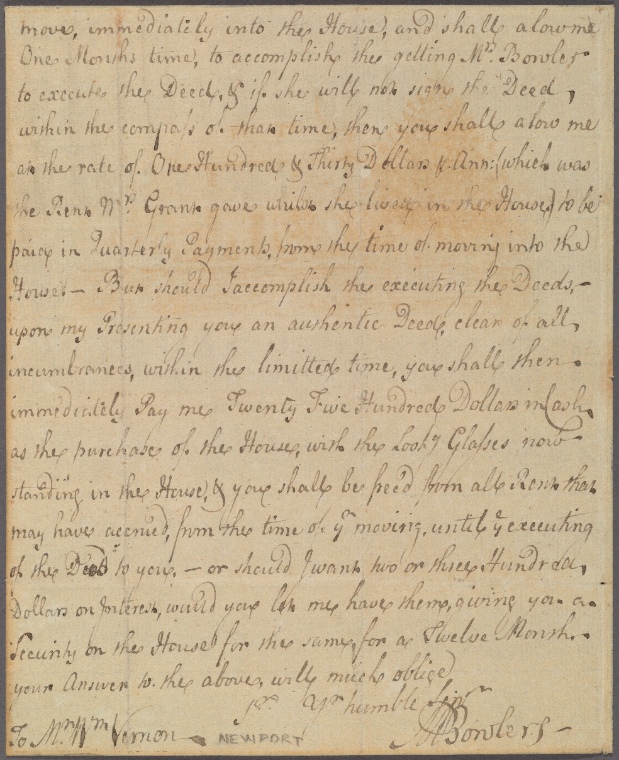 move, immediately into the House, and shall alow me
One Months time, to accomplish the getting Mrs. Bowler
to execute the Deed, & if she will not sign the Deed,
within the compass of that time, then you shall alow me
at the rate of One Hundred & Thirty Dollars p. Ann: (which was
the Rent Mr. Grant gave whilst she lived in the House) to be
paid in Quarterly Payments, from the time of moving into the
House — But should I accomplish the executing the Deeds, –
upon my Presenting you an authentic Deed, clear of all,
incumbrances, within the limitted time, you shall then
immediitely Pay me Twenty Five Hundred Dollars in Cash
as the purchase of the House, with the Look'g Glasses now
standing in the House, & you shall be free'd from all Rent that
may have accrued, from the time of yr moving, until ye executing
of the Deed to you. — or should I want two or three Hundred,
Dollars on Interest, would you let me have them, giving you a
Security on the House for the same, for a Twelve Month.
your Answer to the above, will much oblige
Sr. Yr humble Serv.
Bowler
To Mr. Wm Vernon — NEWPORT